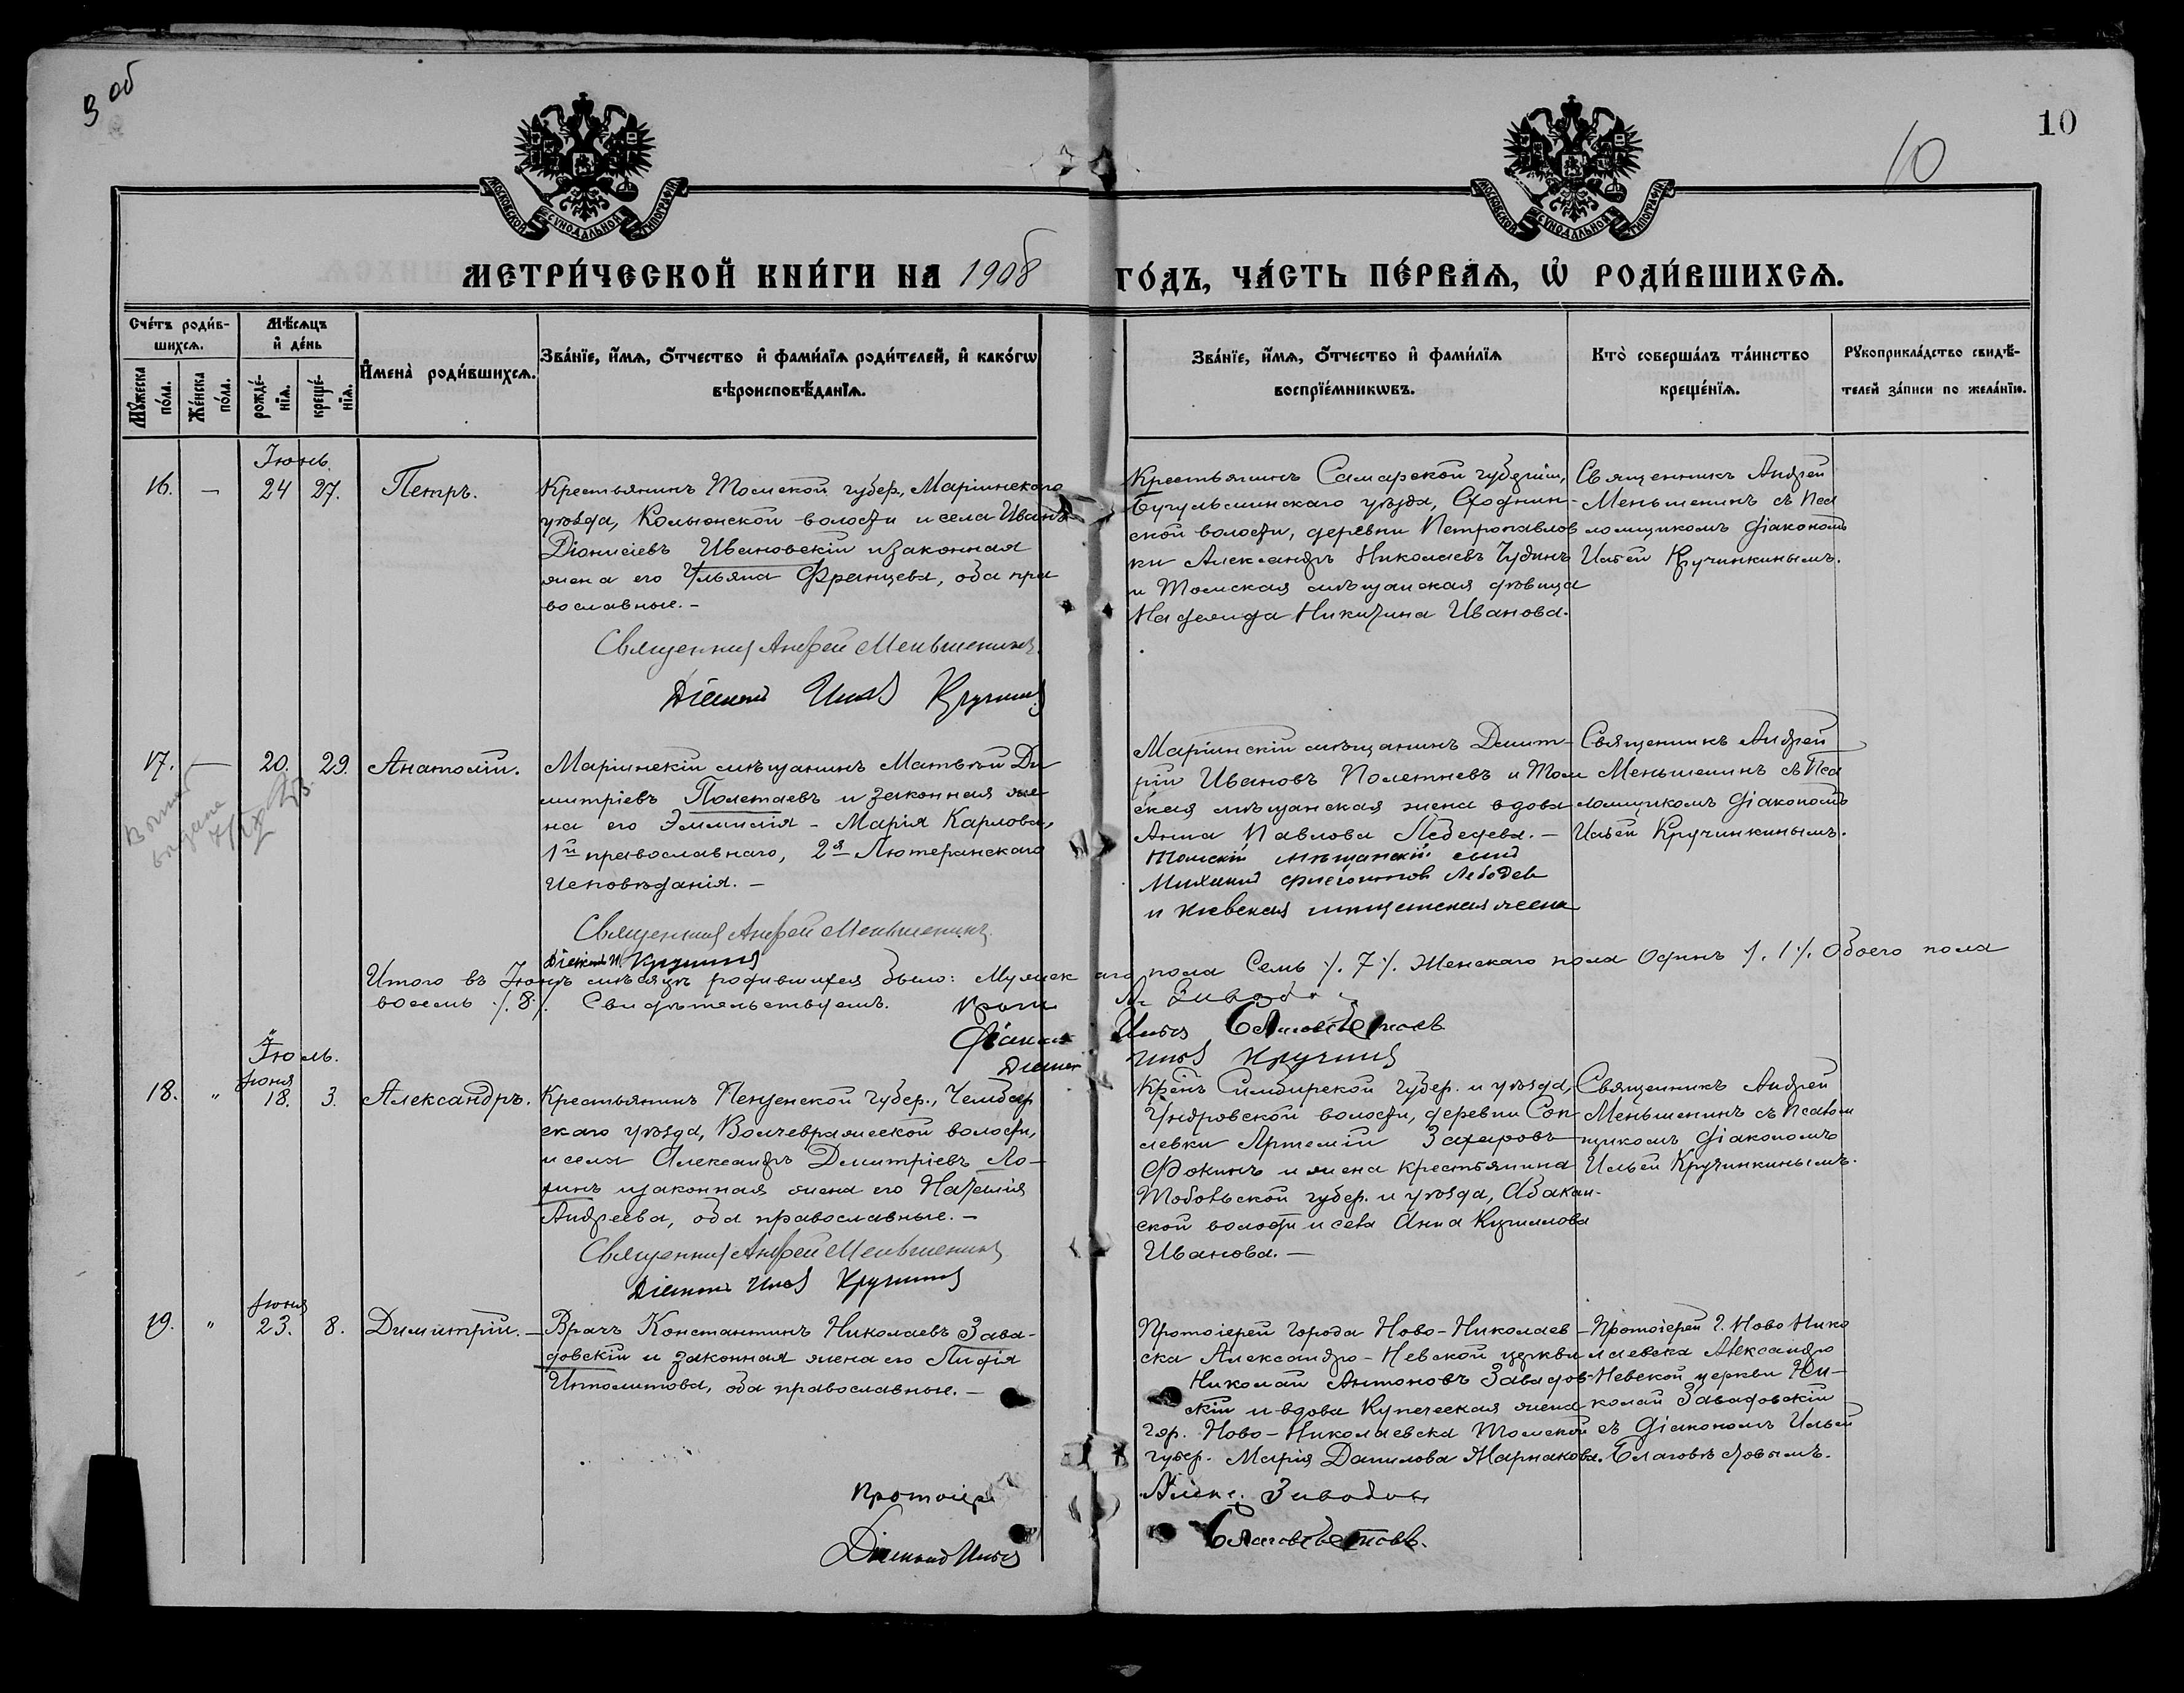 3 об
10
10
МОСКОВСКОЙ СѴНОДАЛЬНОЙ ТИПОГРАФІИ
МОСКОВСКОЙ СѴНОДАЛЬНОЙ ТИПОГРАФІИ
МЕТРИ́ЧЕСКОЙ КНИ́ГИ НА 1908 ГО́ДЪ, ЧА́СТЬ ПЕ́РВАѦ, Ѡ РОДИ́ВШИХСѦ.
Сче́тъ роди́в-
шихсѧ.
Мꙋ́жеска по́ла.
Же́нска по́ла.
Мѣ́сѧцъ
и҆ де́нь
рожде́-
нїѧ.
креще́-
нїѧ.
И҆мена̀ роди́вшихсѧ.
Зва́нїе, и҆́мѧ, ѻ҆́тчество и҆ фами́лїѧ роди́телей, и҆ како́гѡ
вѣроисповѣ́данїѧ.
Зва́нїе, и҆́мѧ, ѻ҆́тчество и҆ фами́лїѧ
воспрїе́мникѡвъ.
Кто̀ соверша́лъ та́инство
креще́нїѧ.
Рꙋкоприкла́дство свидѣ́-
телей за́писи по жела́нїю.
Іюнь.
16. — 24 27. Петръ.
Крестьянинъ Томской губер., Маріинскаго
уѣзда, Колыонской волости и села Иванъ
Діонисіевъ Ивановскій и законная
жена его Ульяна Францева, оба пра
вославные. –
Священникъ Андрей Меньшенинъ.
Діаконъ Илья Кручинкинъ
Крестьянинъ Самарской губерніи,
Бугульминскаго уѣзда, Сходнин-
ской волости, деревни Петропавлов
ки Александръ Николаевъ Чудинъ
и Томская мѣщанская дѣвица
Надежда Никитина Иванова.
Священникъ Андрей
Меньшенинъ съ Пса
ломщикомъ діакономъ
Ильей Кручинкинымъ.
17. — 20. 29. Анатолій.
выдана
Маріинскій мѣщанинъ Матвѣй Ди
митріевъ Полетаевъ и законная же
на его Эмилія – Марія Карлова,
1й православнаго, 2я Лютеранскаго
исповѣданія. –
Священникъ Андрей Меньшенинъ.
Діаконъ И. Кручинкинъ
Маріинскій мѣщанинъ Димит-
рій Ивановъ Полетаевъ и Том
ская мѣщанская жена вдова
Анна Павлова Лебедева. –
Томскій мѣщанскій сынъ
Михаилъ Лебедев
и Киевская мѣщанская жена
Священникъ Андрей
Меньшенинъ съ Пса
ломщикомъ діакономъ
Ильей Кручинкинымъ.
Итого въ Іюнѣ мѣсяцѣ родившихся было: Мужскаго пола Семь ./. 7 ./. Женскаго пола Одинъ ./. 1 ./. Обоего пола
восемь ./. 8 ./. Свидѣтельствуемъ. Прот. Н. Завадовскій
Діаконъ Илья Благовѣстовъ
Діаконъ Илья Кручинкинъ
Іюль.
Іюня
18. " 18. 3. Александръ.
Крестьянинъ Пензенской губер., Чембар
скаго уѣзда, Волчевражской волости,
и села Александръ Димитріевъ Ло-
гинъ и законная жена его Наталія
Андреева, оба православные. –
Священникъ Андрей Меньшенинъ
Діаконъ Илья Кручинкинъ
Кр–нъ Симбирской губер. и уѣзда,
Ундровской волости, деревни Соп
левки Артемій Захаровъ
Фокинъ и жена крестьянина
Тобольской губер. и уѣзда, Абалак-
ской волости и села Анна
Иванова. –
Священникъ Андрей
Меньшенинъ съ Псалом
щикомъ діакономъ
Ильей Кручинкинымъ.
Іюня
19. " 23. 8. Димитрій. –
Врачъ Константинъ Николаевъ Зава-
довскій и законная жена его Лидія
Ипполитова, оба православные. –
Протоіерей
Діаконъ Илья
Протоіерей города Ново-Николаев-
ска Александро-Невской церкви
Николай Антоновъ Завадов-
скій и вдова Купеческая жена
гор. Ново-Николаевска Томской
губер. Марія Данилова Жарнакова.
Завадовскій
Благовѣстовъ.
Протоіерей г. Ново Нико
лаевска Александро
Невской церкви Ни-
колай Завадовскій
съ діакономъ Ильей
Благовѣстовымъ.